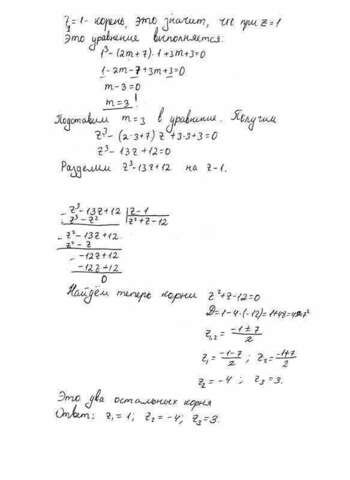 z₁=1 - корень, это значит, что при z=1
Это уравнение выполняется:
1³-(2m+7)·1+3m+3=0
1-2m-7+3m+3=0
m-3=0
m=3!
Подставим m=3 в уравнение. Получим
z³-(2·3+7)z+3·3+3=0
z³-13z+12=0
Разделим z³-13z+12 на z-1.
z³-13z+12 | z-1
z³-z² | z²+z-12
z²-13z+12
z²-z
-12z+12
-12z+12
0
Найдём теперь корни z²+z-12=0
D=1-4·(-12)=1+48=49=7²
z₁,₂=(-1±7)/2
z₁=(-1-7)/2; z₂=(-1+7)/2
z₂=-4; z₃=3.
Это два остальных корня
Ответ: z₁=1; z₂=-4; z₃=3.